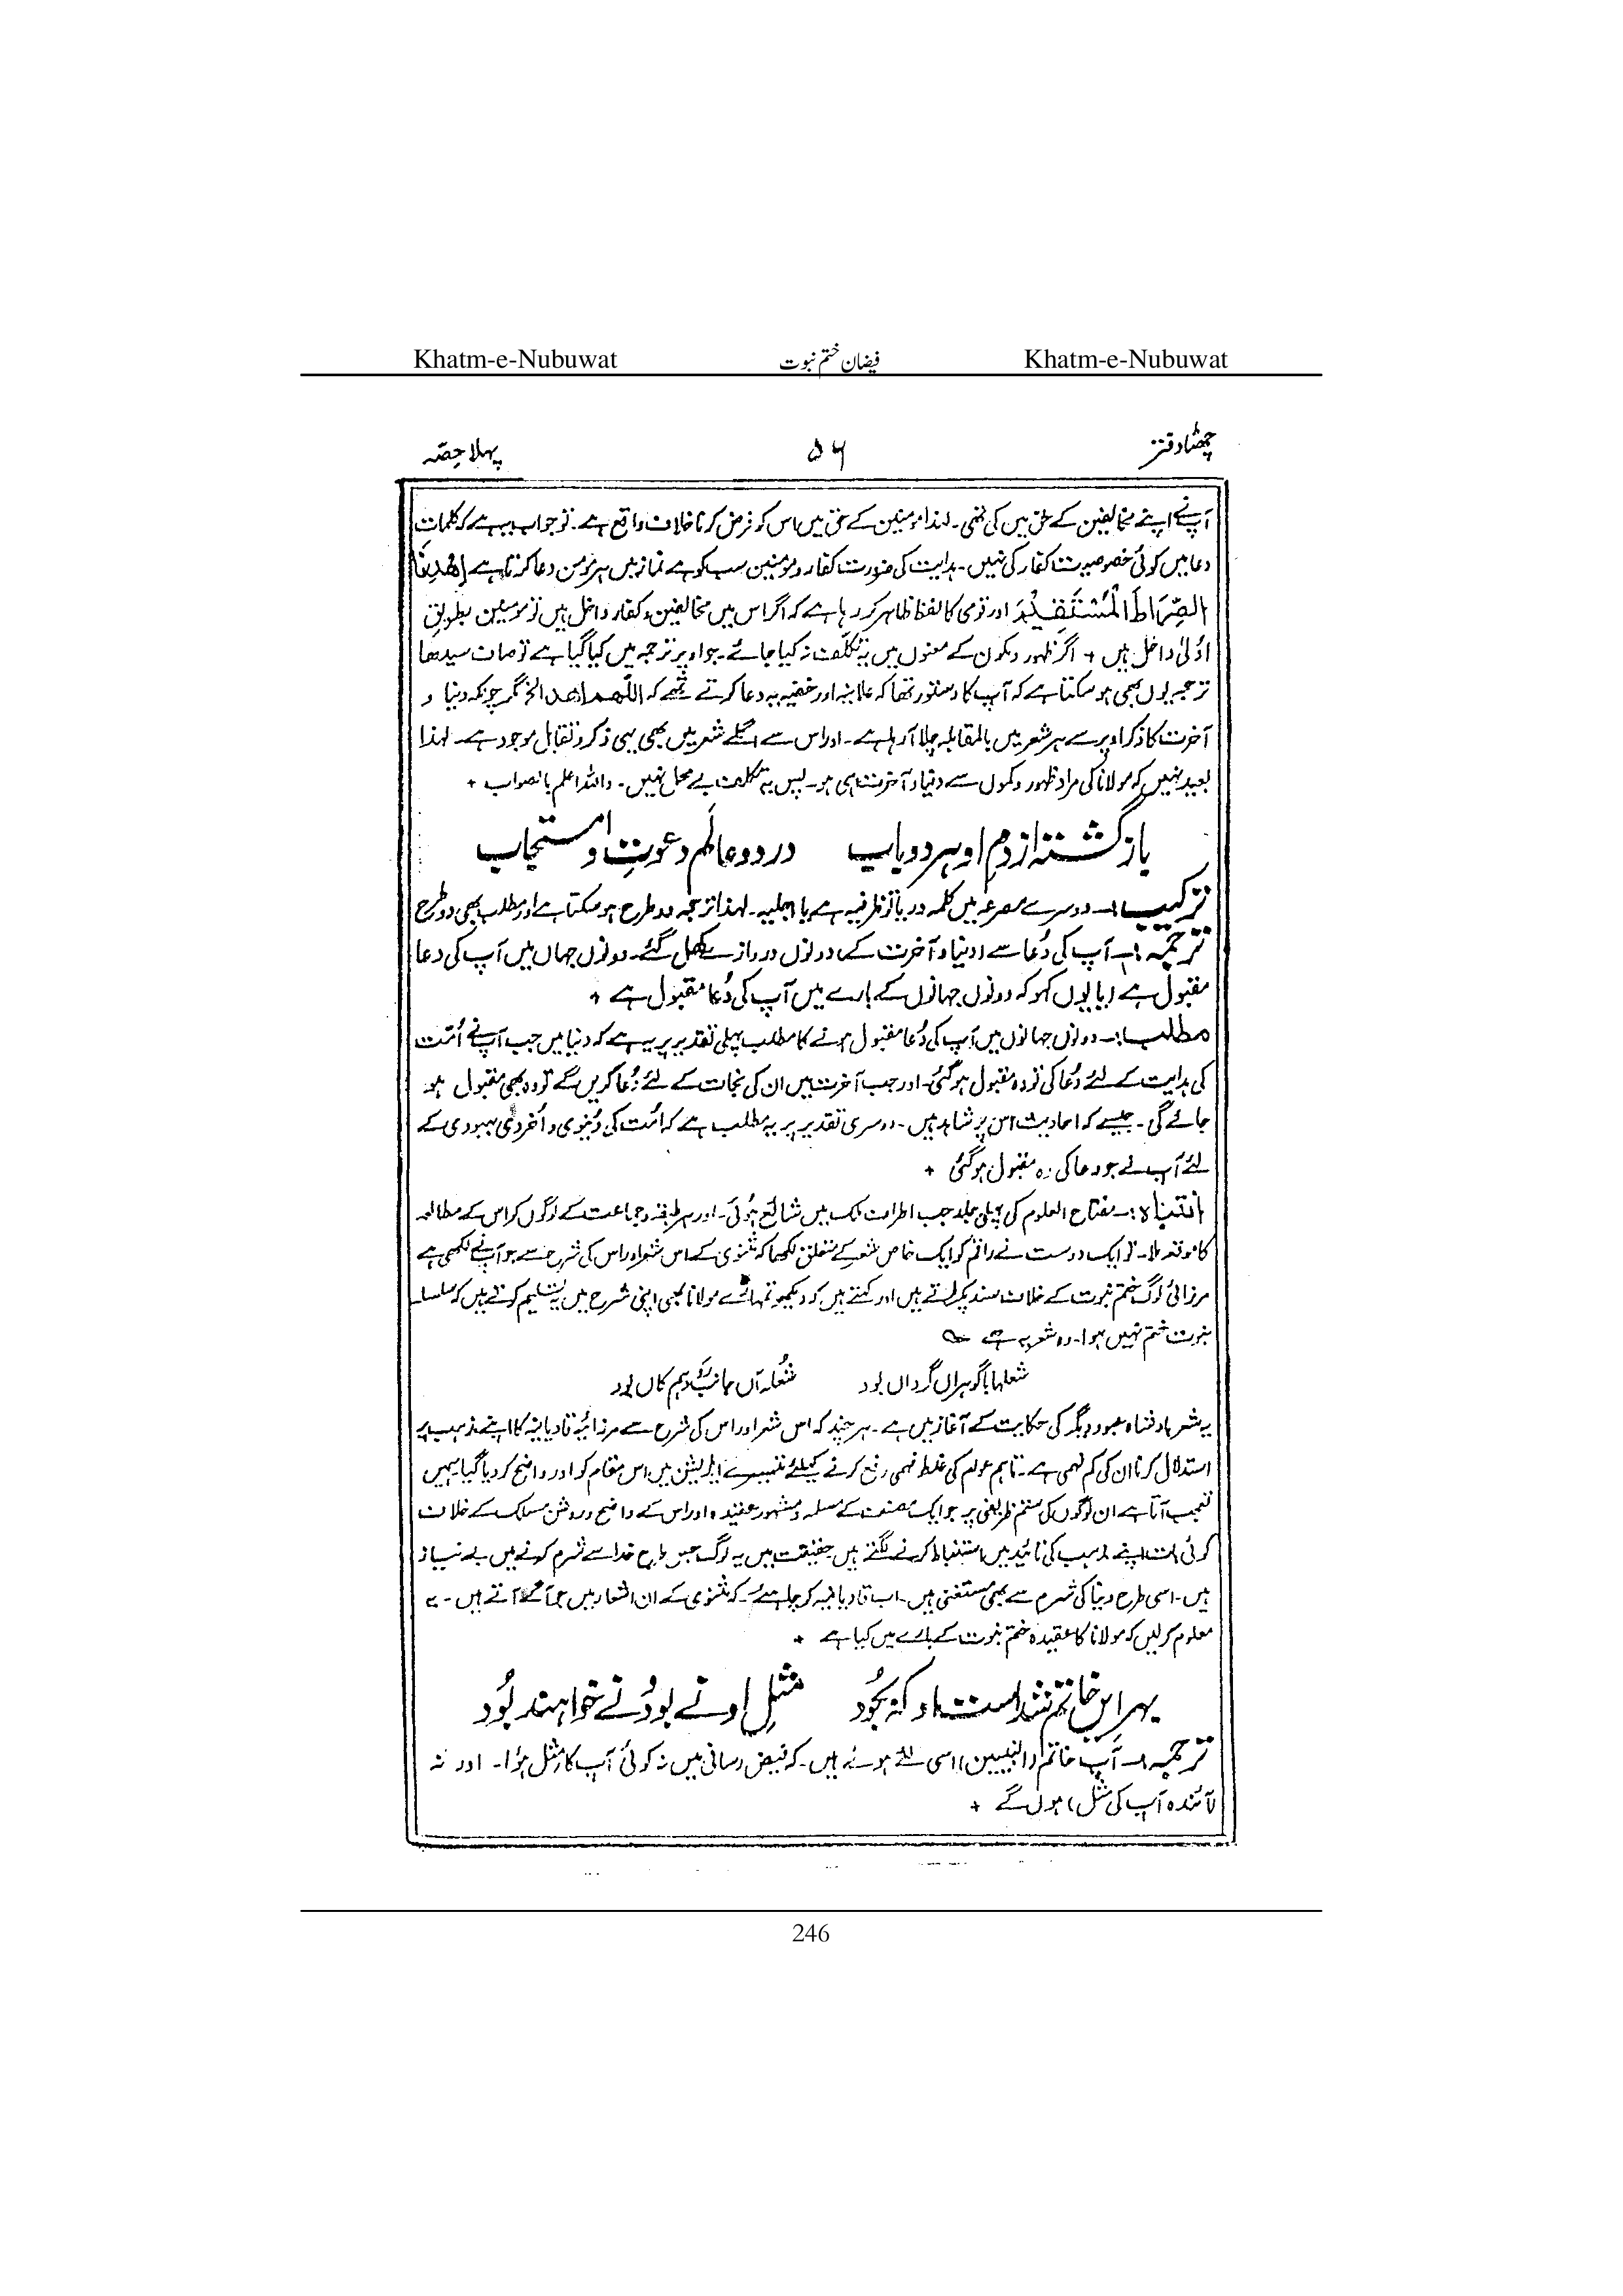 Khatm-e-Nubuwat فیضان ختم نبوت Khatm-e-Nubuwat
چھٹا دفتر ۵۶ پہلا حصّہ
آپنے اپنے مخالفین کے حق میں کی تھی۔ لہذا مومنین کے حق میں اس کو فرض کرنا خلاف واقع ہے۔ تو جواب یہ ہے کہ کلماتِ
دعا میں کوئی خصوصیت کفار کی نہیں۔ ہدایت کی ضرورت کفار و مومنین سب کو ہے نماز میں ہر مومن دعا کرتا ہے اِھْدِنَا
الصِّرَاطَ الْمُسْتَقِیْمَ اور قومی کا لفظ ظاہر کر رہا ہے کہ اگر اس میں مخالفین و کفار داخل ہیں تو مومنین بطریقِ
اَوْلیٰ داخل ہیں + اگر ظہور و کمون کے معنوں میں یہ تکلّف نہ کیا جائے۔ جو اوپر ترجمہ میں کیا گیا ہے تو صاف سیدھا
ترجمہ یوں بھی ہو سکتا ہے کہ آپ کا دستور تھا کہ علانیہ اور خفیہ یہ دعا کرتے تھے کہ اللّٰھم اھد الخ مگر چونکہ دنیا و
آخرت کا ذکر اوپر سے ہر شعر میں بالمقابلہ چلا آ رہا ہے۔ اور اس سے اگلے شعر میں بھی یہی ذکر و تقابل موجود ہے۔ لہذا
بعید نہیں کہ مولانا کی مراد ظہور و کموں سے دنیا و آخرت ہی ہو۔ پس یہ تکلف بے محل نہیں۔ واللہ اعلم بالصواب +
باز گشتہ از دمِ او ہر دو باب در دو عالم دعوتِ او مستجاب
ترکیب:۔ دوسرے مصرعہ میں کلمہ در یا تو ظرفیہ ہے یا اجلیہ۔ لہذا ترجمہ دو طرح ہو سکتا ہے اور مطلب بھی دو طرح
ترجمہ:۔ آپ کی دُعا سے (دنیا و آخرت کے) دونوں دروازے کھل گئے۔ دونوں جہاں میں آپ کی دعا
مقبول ہے (یا یوں کہو کہ دونوں جہانوں کے بارے میں آپ کی دُعا مقبول ہے +
مطلب:۔ دونوں جہانوں میں آپ کی دُعا مقبول ہونے کا مطلب پہلی تقدیر پر یہ ہے کہ دنیا میں جب آپنے اُمّت
کی ہدایت کے لئے دُعا کی تو وہ مقبول ہو گئی۔ اور جب آخرت میں ان کی نجات کے لئے دُعا کریں گے تو وہ بھی مقبول ہو
جائے گی۔ جیسے کہ احادیث اس پر شاہد ہیں۔ دوسری تقدیر پر یہ مطلب ہے کہ اُمّت کی دُنیوی و اُخروی بہبودی کے
لئے آپ نے جو دعا کی وہ مقبول ہو گئی +
انتباہ:۔ مفتاح العلوم کی پہلی جلد جب اطراف ملک میں شائع ہوئی۔ اور ہر طبقہ و جماعت کے لوگوں کو اس کے مطالعہ
کا موقعہ ملا۔ تو ایک دوست نے راقم کو ایک خاص شعر کے متعلق لکھا کہ مثنوی کے اس شعر اور اس کی شرح سے جو آپنے لکھی ہے
مرزائی لوگ ختم نبوت کے خلاف سند پکڑتے ہیں اور کہتے ہیں کہ دیکھو تمہارے مولانا بھی اپنی شرح میں یہ تسلیم کرتے ہیں کہ سلسلہ
نبوت ختم نہیں ہوا۔ وہ شعر یہ ہے
شعلہا با گوہراں گرداں بود شُعلہ آں جانب رَود ہم کاں بود
یہ شعر بادشاہ جہود دیگر کی حکایت کے آغاز میں ہے۔ ہر چند کہ اس شعر اور اس کی شرح سے مرزائیہ قادیانیہ کا اپنے مذہب پر
استدلال کرنا ان کی کم فہمی ہے۔ تاہم عوام کی غلط فہمی رفع کرنے کیلئے تیسرے ایڈیشن میں اس مقام کو اور واضح کر دیا گیا ہمیں
تعجب آتا ہے ان لوگوں کی ستم ظریفی پر جو ایک مصنف کے مسلمہ و مشہور عقیدہ اور اس کے واضح و روشن مسلک کے خلاف
کوئی بات اپنے مذہب کی تائید میں استنباط کرنے لگتے ہیں حقیقت میں یہ لوگ جس طرح خدا سے شرم کرنے میں بے نیاز
ہیں۔ اسی طرح دنیا کی شرم سے بھی مستغنی ہیں۔ اب قادیانیہ کو چاہئے۔ کہ مثنوی کے ان اشعار میں جو آگے آتے ہیں۔ یہ
معلوم کر لیں کہ مولانا کا عقیدہ ختم نبوت کے بارے میں کیا ہے +
بہرِ ایں خاتم شد است او کہ بجُود مثلِ او نے بود نے خواہند بُود
ترجمہ:۔ آپ خاتم (النبیین) اسی لئے ہوئے ہیں۔ کہ فیض رسانی میں نہ کوئی آپ کا مثل ہؤا۔ اور نہ
(آئندہ آپ کی مثل) ہوں گے +
246